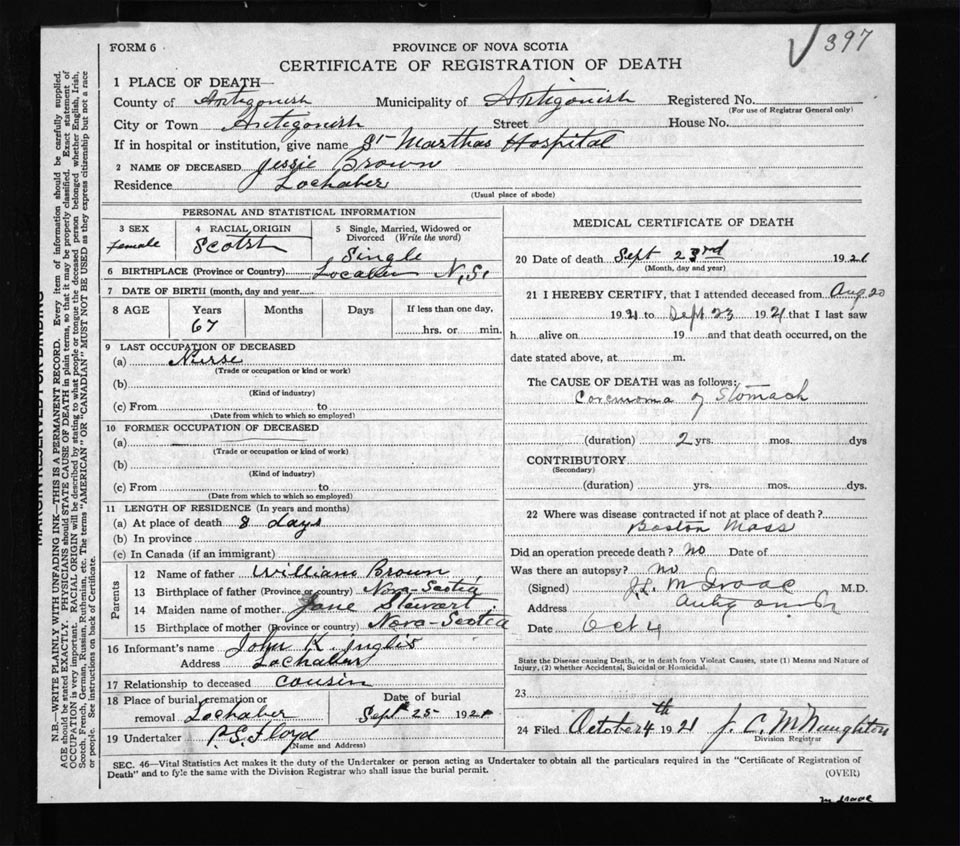 397
FORM 6
PROVINCE OF NOVA SCOTIA
CERTIFICATE OF REGISTRATION OF DEATH
1 PLACE OF DEATH—
County of Antigonish Municipality of Antigonish Registered No.
(For use of Registrar General only)
City or Town Antigonish Street House No.
If in hospital or institution, give name St Marthas Hospital
2 NAME OF DECEASED Jessie Brown
Residence Lochaber
(Usual place of abode)
PERSONAL AND STATISTICAL INFORMATION
3 SEX 4 RACIAL ORIGIN 5 Single, Married, Widowed or
Divorced (Write the word)
female Scotsh Single
6 BIRTHPLACE (Province or Country) Locaber N,S.
7 DATE OF BIRTH (month, day and year
8 AGE Years Months Days If less than one day,
67 hrs. or min.
9 LAST OCCUPATION OF DECEASED
(a) Nurse
(Trade or occupation or kind or work)
(b)
(Kind of industry)
(c) From to
(Date from which to which so employed)
10 FORMER OCCUPATION OF DECEASED
(a)
(Trade or occupation or kind of work)
(b)
(Kind of industry)
(c) From to
(Date from which to which so employed)
11 LENGTH OF RESIDENCE (In years and months)
(a) At place of death 8 days
(b) In province
(c) In Canada (if an immigrant)
Parents
12 Name of father William Brown
13 Birthplace of father (Province or country) Nova Scotia
14 Maiden name of mother Jane Stewart
15 Birthplace of mother (Province or country) Nova-Scotia
16 Informant's name John K. Inglis
Address Lochaber
17 Relationship to deceased cousin
18 Place of burial, cremation or Date of burial
removal Lochaber Sept 25 1921
19 Undertaker P.S. Floyd
(Name and Address)
MEDICAL CERTIFICATE OF DEATH
20 Date of death Sept 23rd 1921
(Month, day and year)
21 I HEREBY CERTIFY, that I attended deceased from Aug 20
1921 to Sept 23 1921 that I last saw
h alive on 19 and that death occurred, on the
date stated above, at m.
The CAUSE OF DEATH was as follows:
Carcinoma of Stomach
(duration) 2 yrs. mos. dys
CONTRIBUTORY
(Secondary)
(duration) yrs. mos. dys.
22 Where was disease contracted if not at place of death?
Boston Mass
Did an operation precede death? no Date of
Was there an autopsy? no
(Signed) M.D.
Address Antigonish
Date Oct 4
State the Disease causing Death, or in death from Violent Causes, state (1) Means and Nature of
Injury, (2) whether Accidental, Suicidal or Homicidal.
23
24 Filed October 4th 1921 J. C. McNaughton
Division Registrar
SEC. 46—Vital Statistics Act makes it the duty of the Undertaker or person acting as Undertaker to obtain all the particulars required in the "Certificate of Registration of
Death" and to fyle the same with the Division Registrar who shall issue the burial permit.
(OVER)
MARGIN RESERVED FOR BINDING
N.B.—WRITE PLAINLY WITH UNFADING INK—THIS IS A PERMANENT RECORD. Every item of information should be carefully supplied.
AGE should be stated EXACTLY. PHYSICIANS should STATE CAUSE OF DEATH in plain terms, so that it may be properly classified. Exact statement of
OCCUPATION is very important. RACIAL ORIGIN will be described by stating to what people or tongue the deceased person belonged whether English, Irish,
Scotch, French, German, Russian, Ruthenian, etc. The terms "AMERICAN" OR "CANADIAN" MUST NOT BE USED as they express citizenship but not a race
or people. See instructions on back of Certificate.